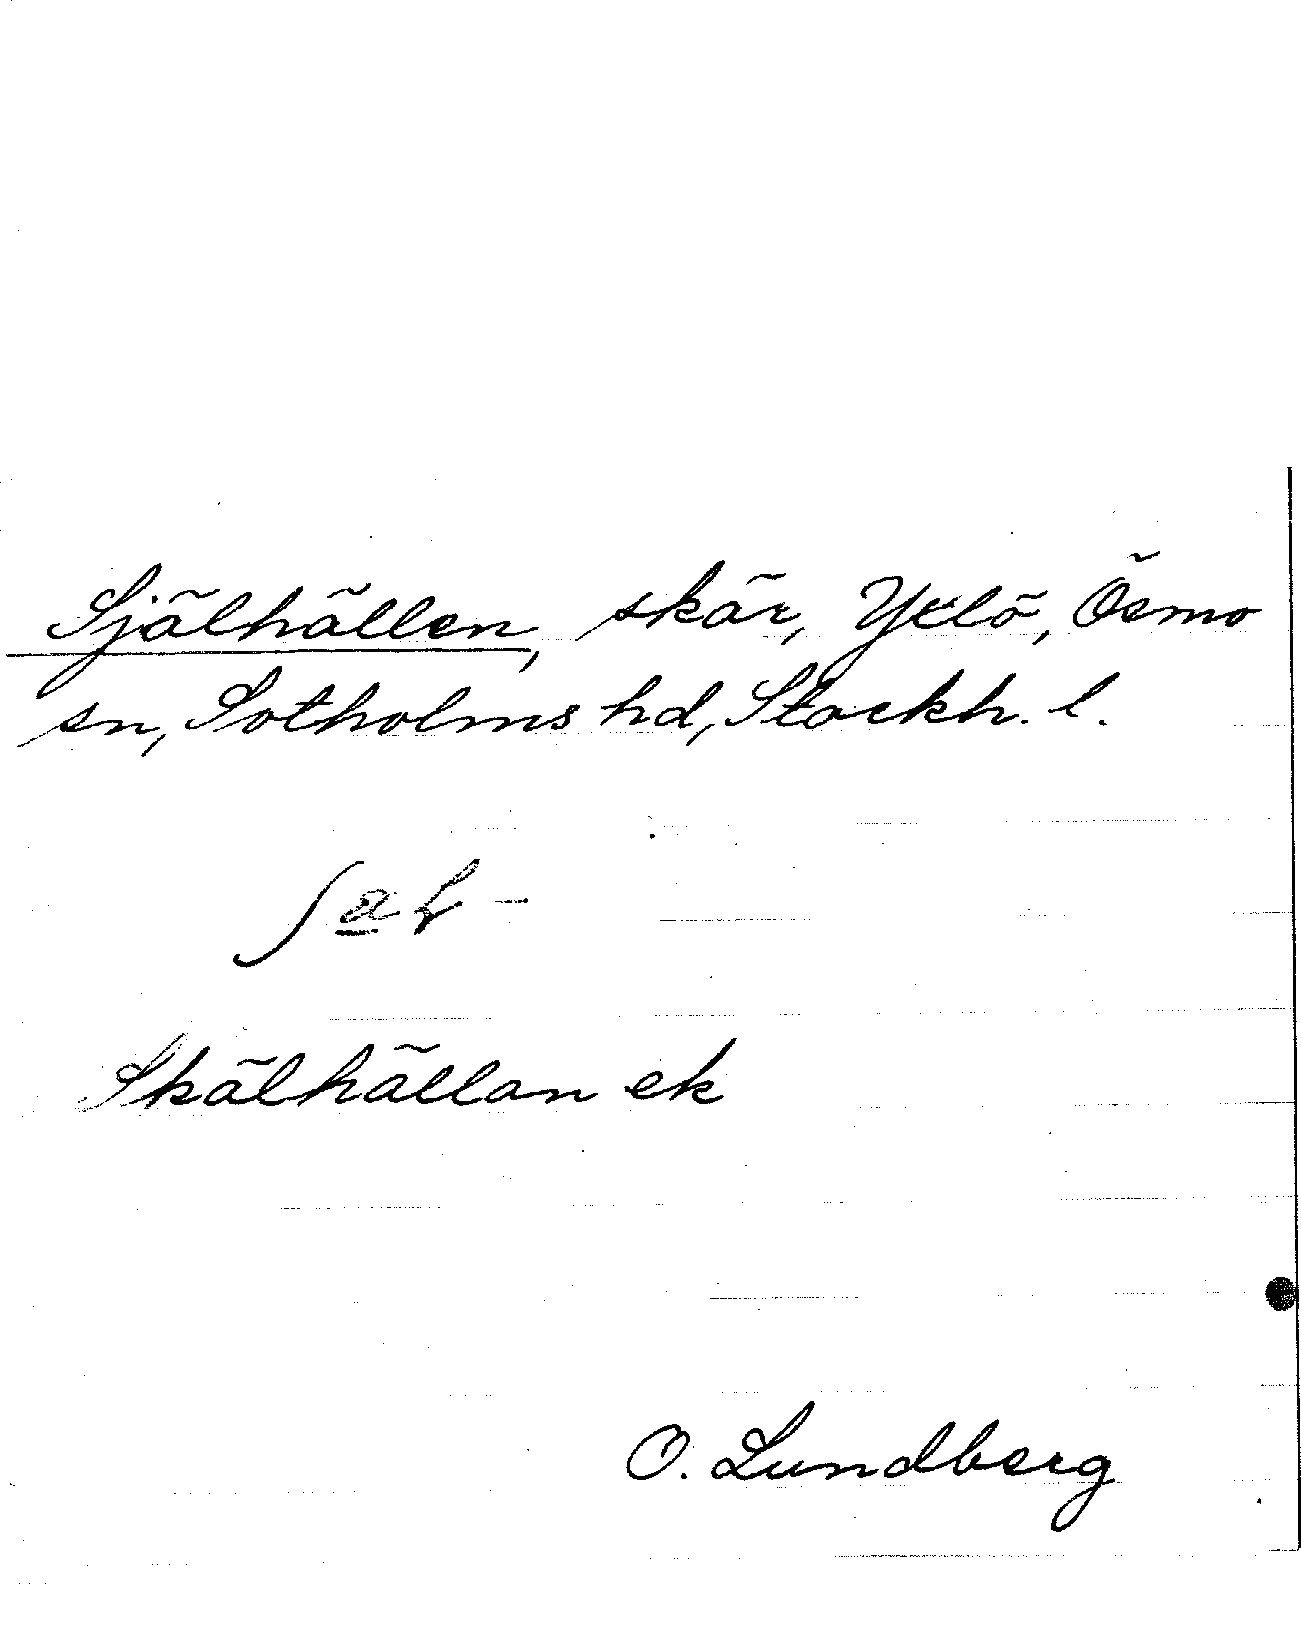 Själhällen, skär, Yttö, Ösmo
sn, Sotholms hd, Stockh. l.
Skälhällan ek
O. Lundberg